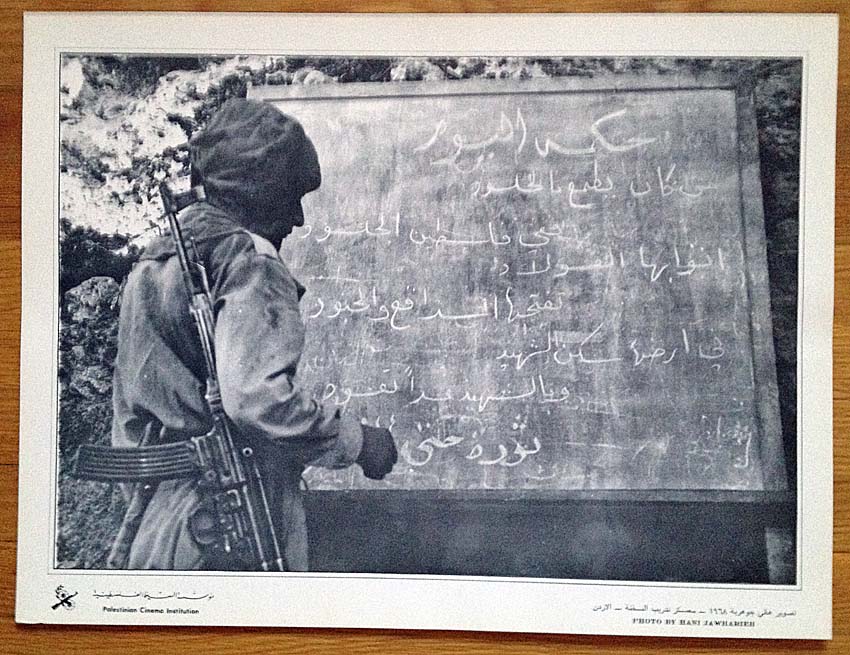 حكمة اليوم
من كان يطمع بالخلود
ففي فلسطين الخلود
ابوابها الفولاذ
تفتحها المدافع
في ارضها سكن الشهيد
وبالشهيد غداً
ثورة حتى
مؤسسة السينما الفلسطينية
Palestinian Cinema Institution
تصوير هاني جوهرية ١٩٦٨ ــ معسكر تدريب ــ الاردن
PHOTO BY HANI JAWHARIEH